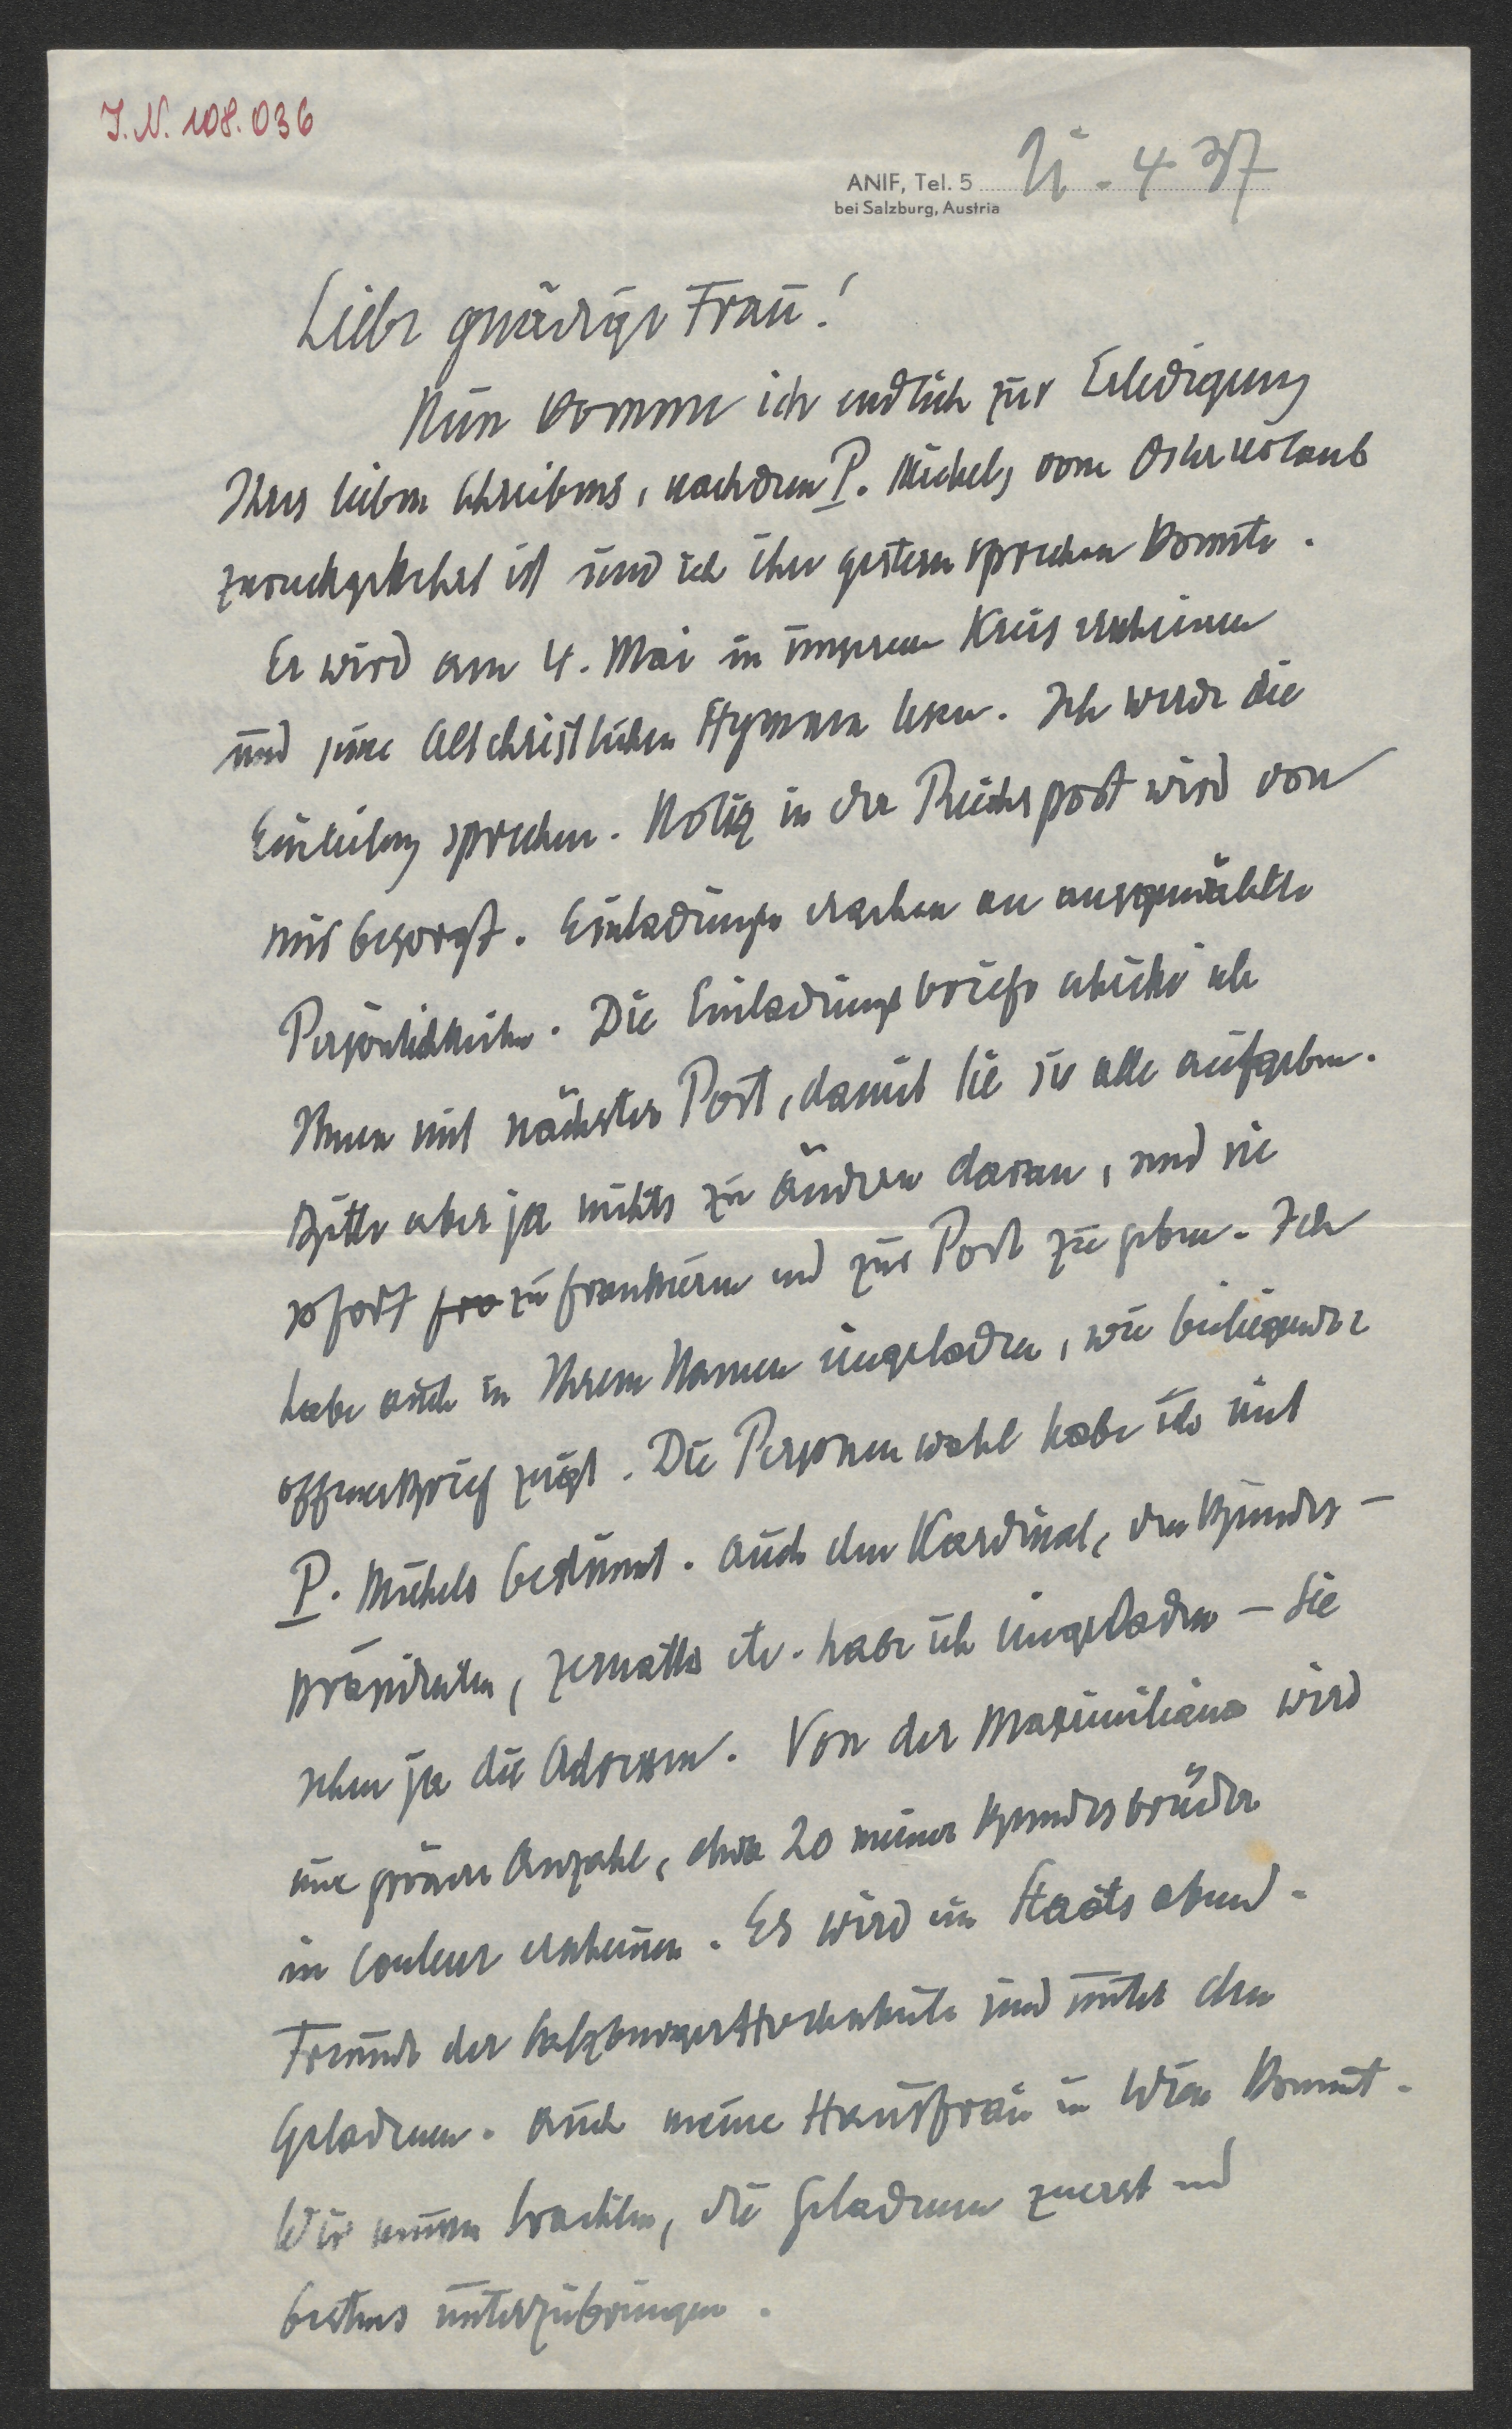 I. N. 108.036
ANIF, Tel. 5
bei Salzburg, Austria
4 37
Liebe gnädige Frau!
Nun komme ich endlich zur Erledigung
Ihres lieben Schreibens, nachdem P. Michels vom Osterurlaub
zurückgekehrt ist und ich ihn gestern sprechen konnte.
Er wird am 4. Mai in unserem Kreis erscheinen
und seine Altchristlichen Hymnen lesen. Ich werde die
Einleitung sprechen. Notiz in der Reichspost wird von
mir besorgt. Einladungen ergehen an ausgewählte
Persönlichkeiten. Die Einladungsbriefe schicke ich
Ihnen mit nächster Post, damit Sie sie alle aufgeben.
Bitte aber ja nichts zu ändern daran, und sie
sofort fra zu frankieren und zur Post zu geben. Ich
habe auch in Ihrem Namen eingeladen, wie beiliegender
offener Brief zeigt. Die Personenwahl habe ich mit
P. Michels bestimmt. Auch den Kardinal, den Bundes-
präsidenten, Zernatto etc. habe ich eingeladen – Sie
sehen ja die Adressen. Von der Maximiliana wird
eine grössere Anzahl, etwa 20 meiner Bundesbrüder
in Couleur erscheinen. Es wird ein Staatsabend.
Freunde der Salzburger Hochschule sind unter den
Geladenen. Auch meine Hausfrau in Wien kommt.
Wir müssen trachten, die Geladenen zuerst und
bestens unterzubringen.